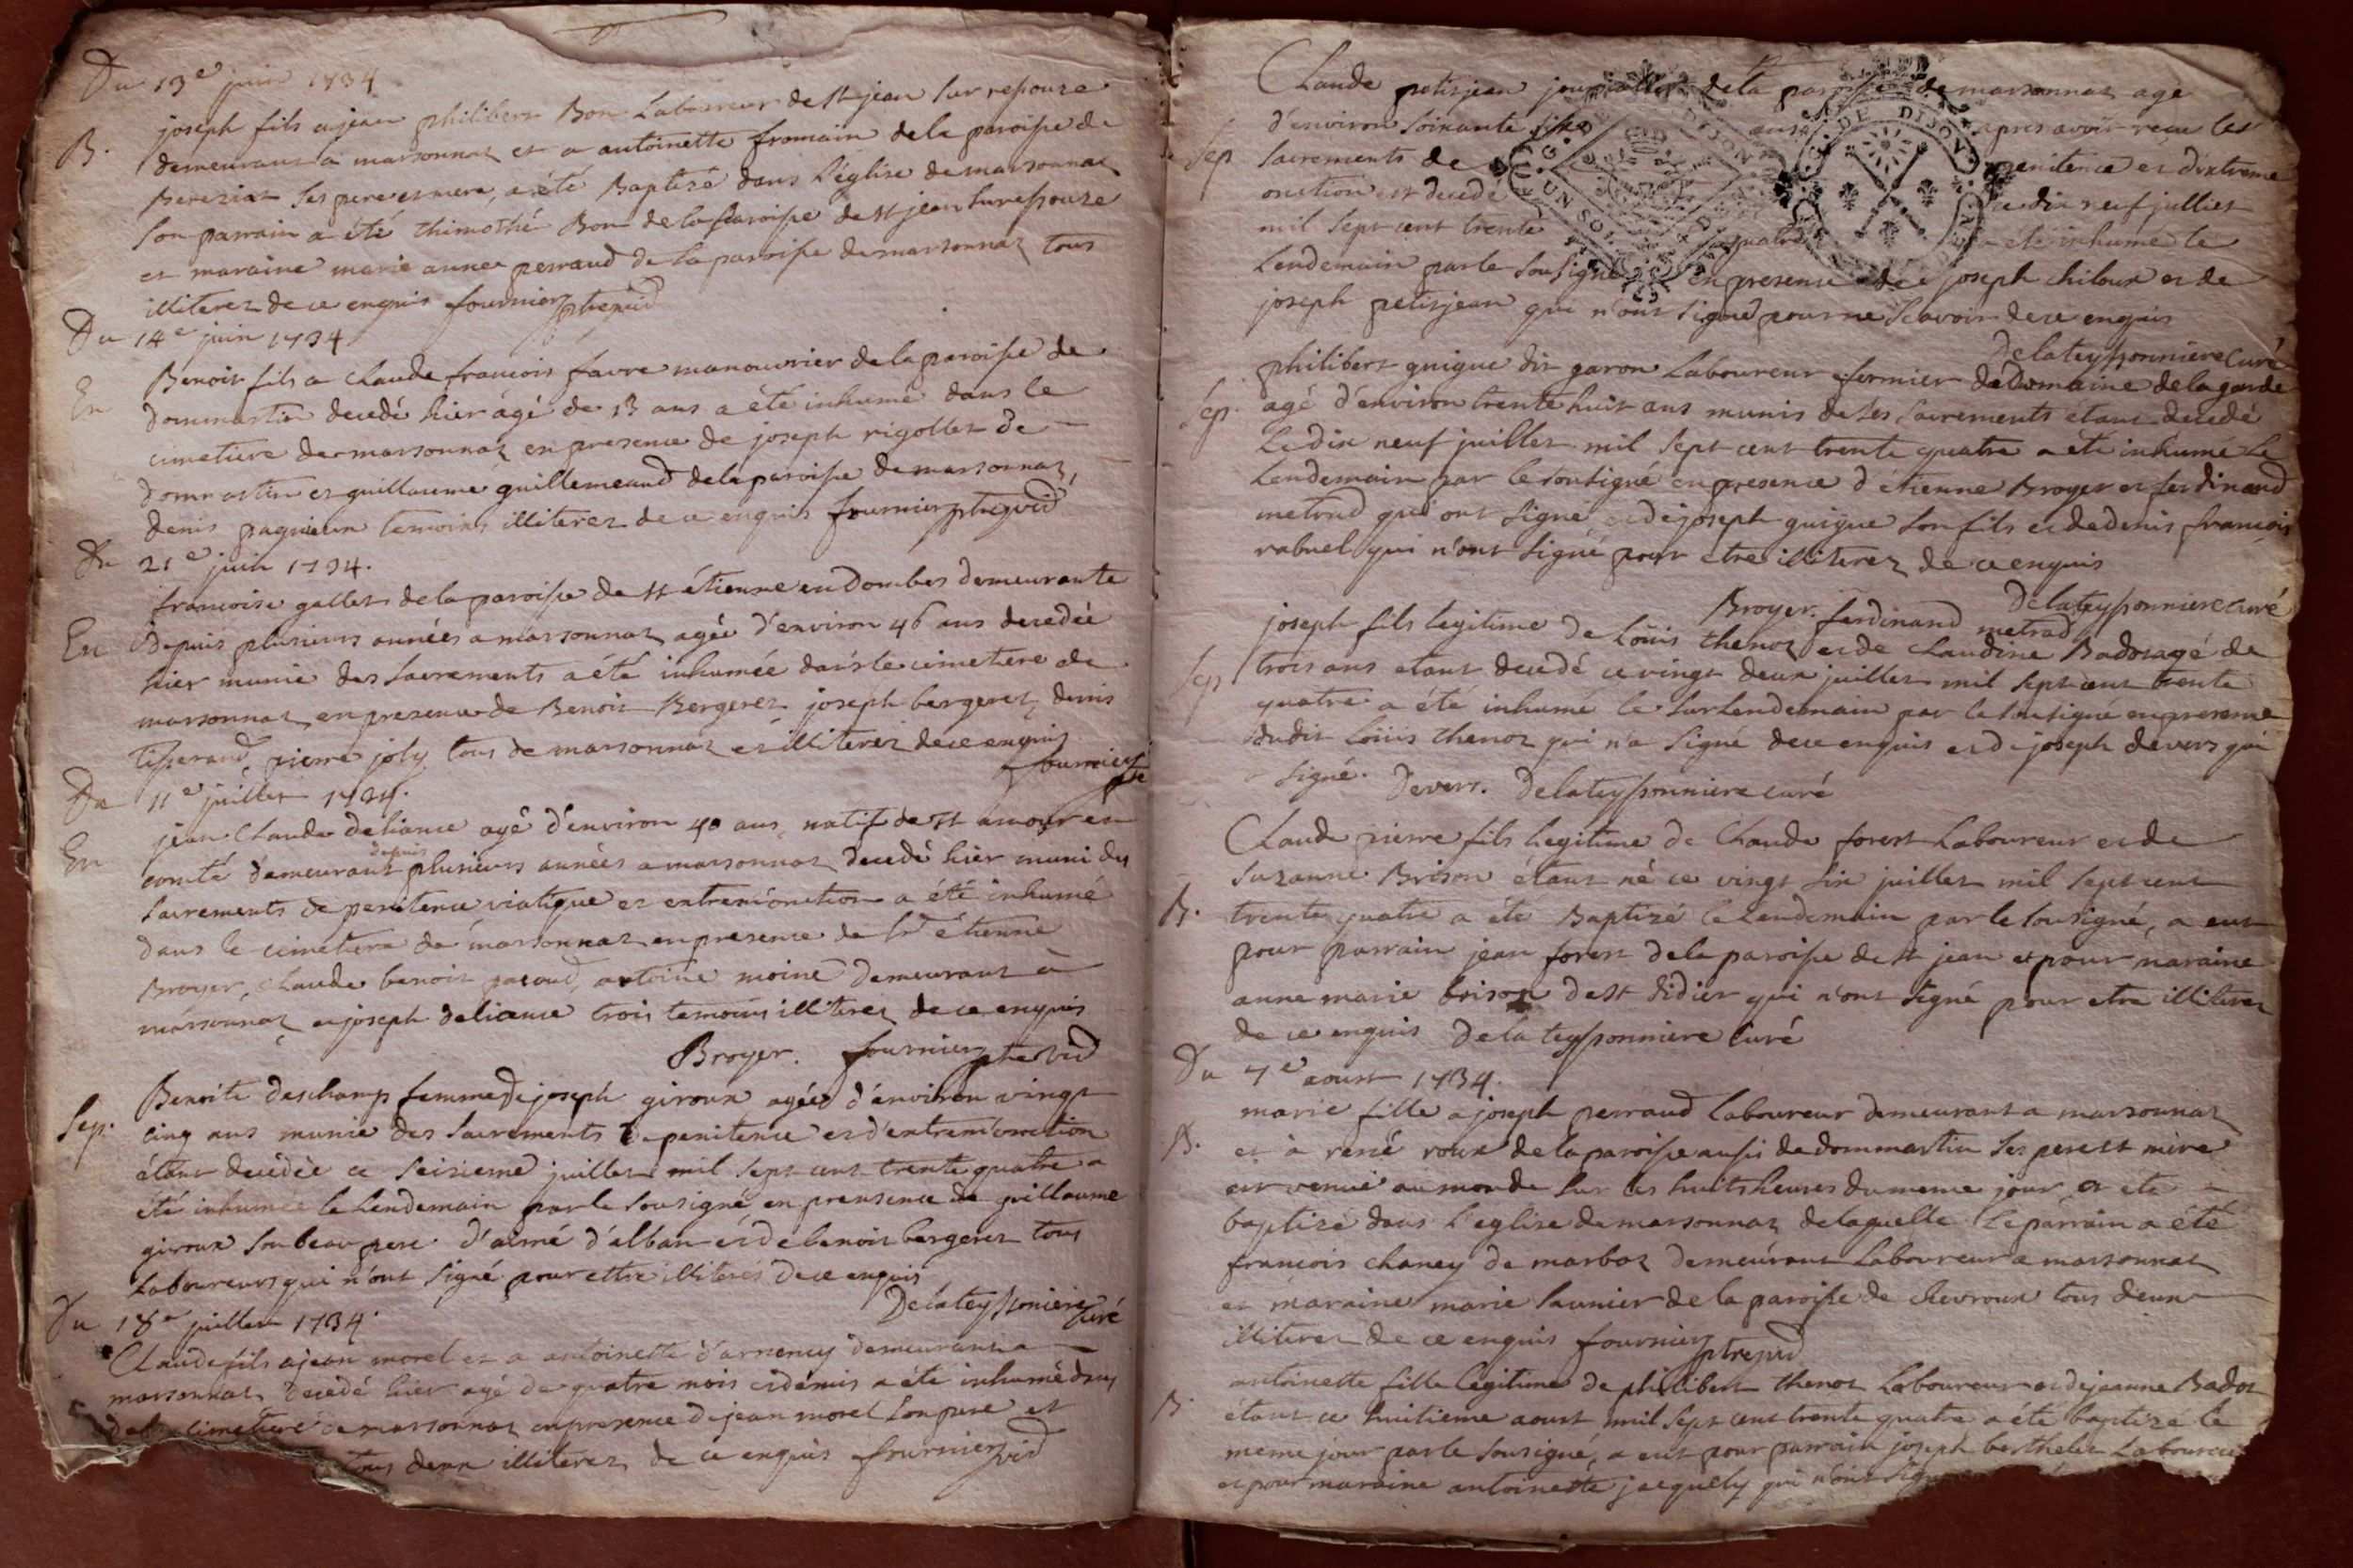 Du 13e juin 1734
B.
joseph fils a jean philibert Bon Laboureur de st jean sur resouze
demeurant a marsonnaz et a antoinette fromain de la paroisse de
Bereziat ses pere et mere, a été Baptizé dans l'église de marsonnaz
son parrain a été thimothé Bon de la paroisse de st jean sur ressouze
et maraine marie annee perraud de la paroisse de marsonnaz tous
illiterez de ce enquis fournier ptre vic
Du 14e juin 1734
En
Benoit fils a claude francois favre manouvrier de la paroisse de
dommartin decedé hier âgé de 13 ans a été inhumé dans le
cimetiere de marsonnaz en presence de joseph rigollet de
dommartin et guillaume guillemeaud de la paroisse de marsonnaz,
denis temoins illiterez de ce enquis fournier ptre vic
Du 21e juin 1734.
En
francoise gallet de la paroisse de st étienne en dombes demeurante
depuis plusieurs années a marsonnaz agée d'environ 46 ans decedée
hier munie des sacrements a été inhumée dans le cimetiere de
marsonnaz en presence de Benoit Bergeret joseph bergeret, denis
Tisserand, pierre joly tous de marsonnaz et illiterez de ce enquis
fournier ptre
Du 11e juillet 1734.
En
jean Claude deliance agé d'environ 40 ans, natif de st amour en
comté demeurant depuis plusieurs années a marsonnaz decedé hier muni des
sacrements de penitence viatique et extremionction a été inhumé
dans le cimetiere de marsonnaz en presence de Sr étienne
Broyer, claude benoit pacoud, antoine moine demeurant à
marsonnaz et joseph deliance trois temoins illiterez de ce enquis
Broyer. fournier ptre vic
Sep.
Benoite deschamp femme de joseph giroux agée d'environ vingt
cinq ans munie des sacrements de penitence et d'extremionction
étant decedée ce seisieme juillet mil sept cent trente quatre a
été inhumée le Lendemain par le sousigné en preusence de guillaume
giroux son beau pere d'aimé d'alban et de benoit bergeret tous
Laboureurs qui n'ont signé pour ettre illiterés de ce enquis
Delateyssoniere curé
Du 18e juillet 1734.
Claude fils a jean morel et a antoinette d'arnency demeurant a
marsonnaz decedé hier agé de quatre mois et demis a été inhumé dans
cimetiere de marsonnaz en presence de jean morel son pere et
tous deux illiterez de ce enquis fournier vic
Claude petitjean journallier de la paroisse de marsonnaz age
d'environ soixante six ans apres avoir recu les
Sep
sacrements de penitence et d'extreme
onction est decedé ce dix neuf juillet
mil sept cent trente quatre a été inhumé le
Lendemain par le sousigné en presence de joseph chiloux et de
joseph petitjean qui n'ont signé pour ne scavoir de ce enquis
Delateyssonniere curé
G. DE DIJON
UN SOL
G. DE DIJON
philibert guigue dit garon Laboureur fermier du Domaine de la garde
Sep.
agé d'environ trente huit ans munis de ses sacrements etant decedé
Le dix neuf juillet mil sept cent trente quatre a été inhumé Le
Lendemain par le sousigné en presence d'étienne Broyer et ferdinand
metrad qui ont signé et de joseph guigue son fils et de denis françois
rabuel qui n'ont signé pour etre illiterez de ce enquis
Broyer. ferdinand metrad Delateyssonniere curé
joseph fils legitime de Loüis thenoz et de claudine Badoz agé de
Sep
trois ans etant decedé ce vingt deux juillet mil sept cent trente
quatre a été inhumé le surlendemain par le sousigné en presence
dudit Loüis thenoz qui n'a signé de ce enquis et de joseph devers qui
a signé. Devers. Delateyssonniere curé
Claude pierre fils legitime de Claude forest Laboureur et de
suzanne Brison étant né ce vingt six juillet mil sept cent
B.
trente quatre a été Baptizé le Lendemain par le sousigné, a eut
pour parrain jean forest de la paroisse de st jean et pour maraine
anne marie brison de st didier qui n'ont signé pour etre illiterez
de ce enquis Delateyssonniere Curé
Du 7e aoust 1734.
marie fille a joseph perraud laboureur demeurant a marsonnaz
B.
et à rené roux de la paroisse aussi de dommartin ses pere et mère
est venüe au monde sur les huits heures du meme jour et été
baptizé dans l'eglise de marsonnaz de laquelle le parrain a été
françois chaney de marboz demeurant Laboureur a marsonnaz
et maraine marie saunier de la paroisse de chevroux tous deux
illiterez de ce enquis fournier ptre vic
antoinette fille legitime de philibert thenoz Laboureur et de jeanne Badoz
B.
étant ce huitieme aoust mil sept cent trente quatre a été baptizé le
meme jour par le sousigné, a eut pour parrain joseph berthelet Laboureur
et pour maraine antoinette jacquely qui n'ont signé